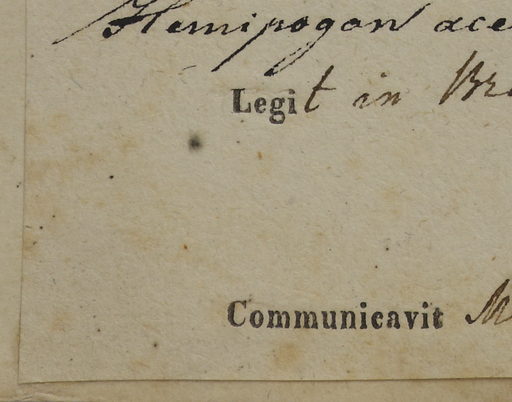 Hemipogon ace
Legit in Br
Communicavit M